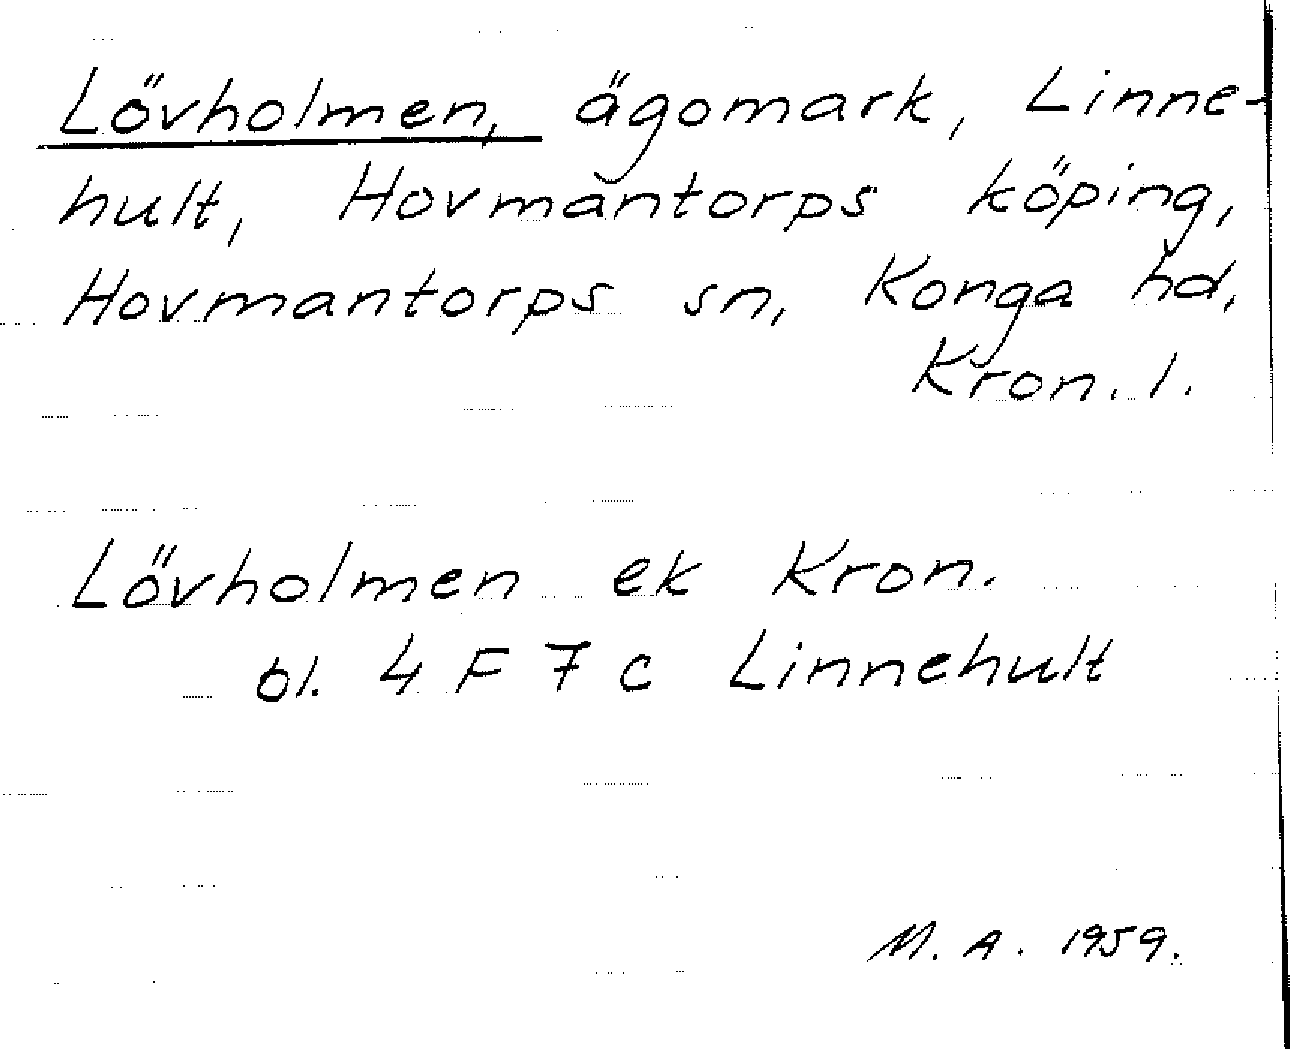 Lövholmen, ägomark, Linne-
hult, Hovmantorps köping,
Hovmantorps sn, Konga hd,
Kron. l.
Lövholmen ek Kron.
bl. 4 F 7 c Linnehult
M. A. 1959.